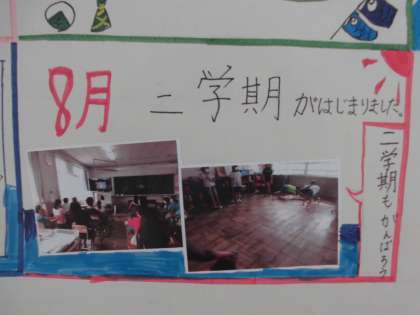 8月 二学期がはじまりました。
二学期もがんばろう